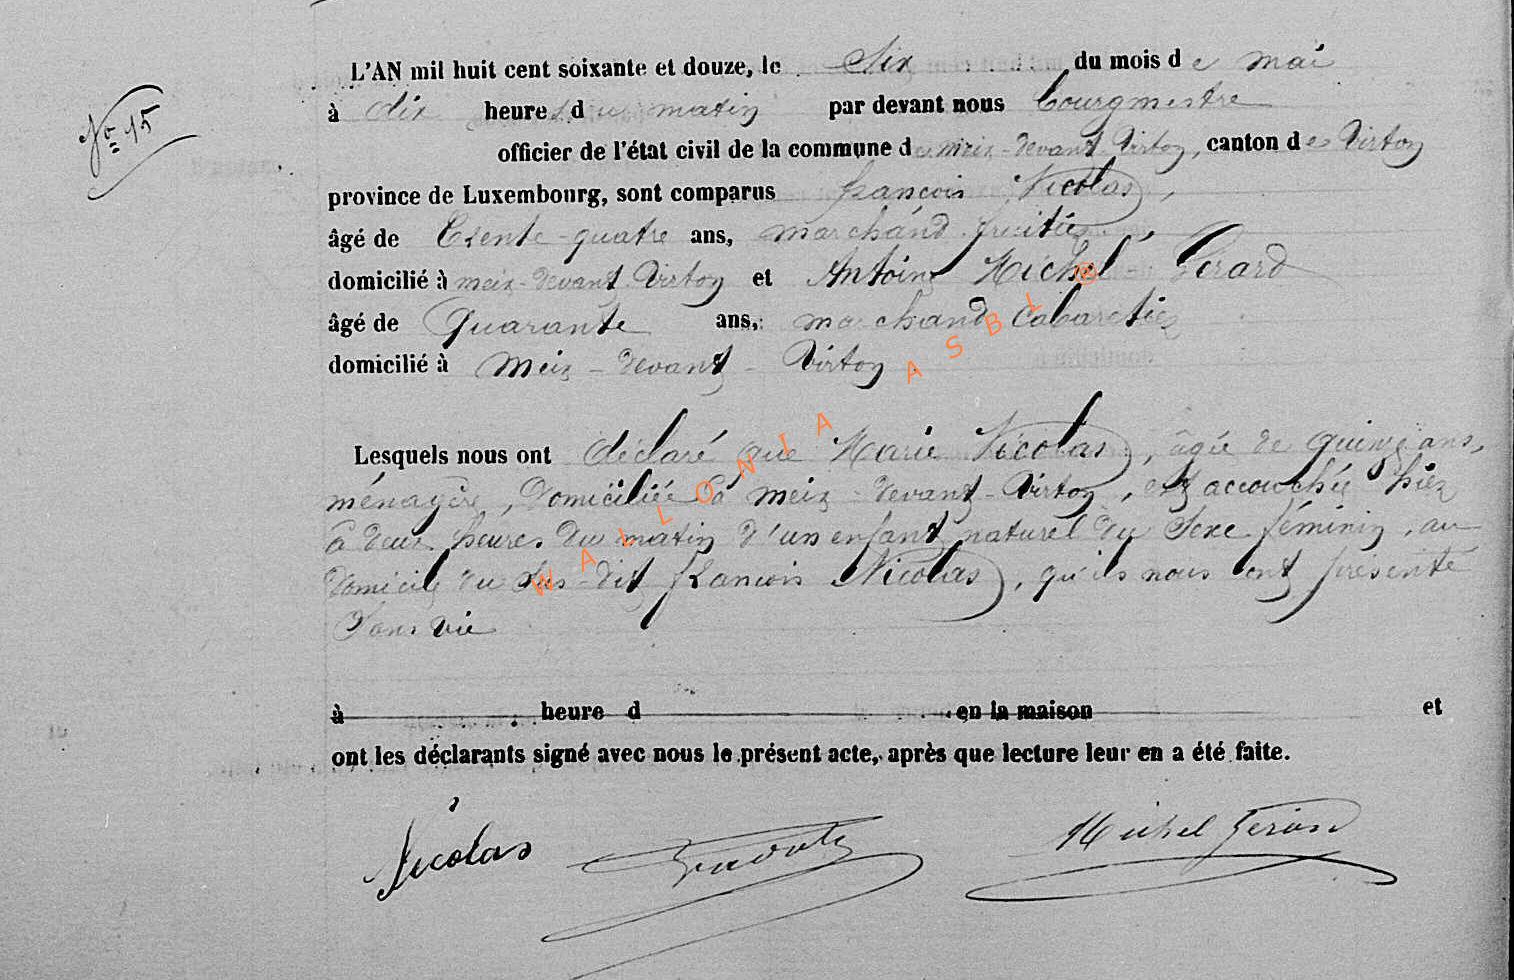 No 15
L'AN mil huit cent soixante et douze, le Six du mois de mai
à dix heures du matin par devant nous Bourgmestre
officier de l'état civil de la commune de meix-devant Virton, canton de Virton
province de Luxembourg, sont comparus françois Nicolas,
âgé de Trente-quatre ans, marchand fruitier
domicilié à meix-devant Virton et Antoine Michel Gérard
âgé de Quarante ans, marchand Cabaretier
domicilié à Meix-devant-Virton
Lesquels nous ont déclaré que Marie Nicolas, âgée de quinze ans,
ménagère, domiciliée à meix-devant-Virton, est accouchée hier
à deux heures du matin d'un enfant naturel du Sexe féminin, au
domicile du sus-dit françois Nicolas, qu'ils nous ont présenté
Sans vie
à heure d en la maison et
ont les déclarants signé avec nous le présent acte, après que lecture leur en a été faite.
Nicolas Michel Gérard
WALLONIA ASBL ©